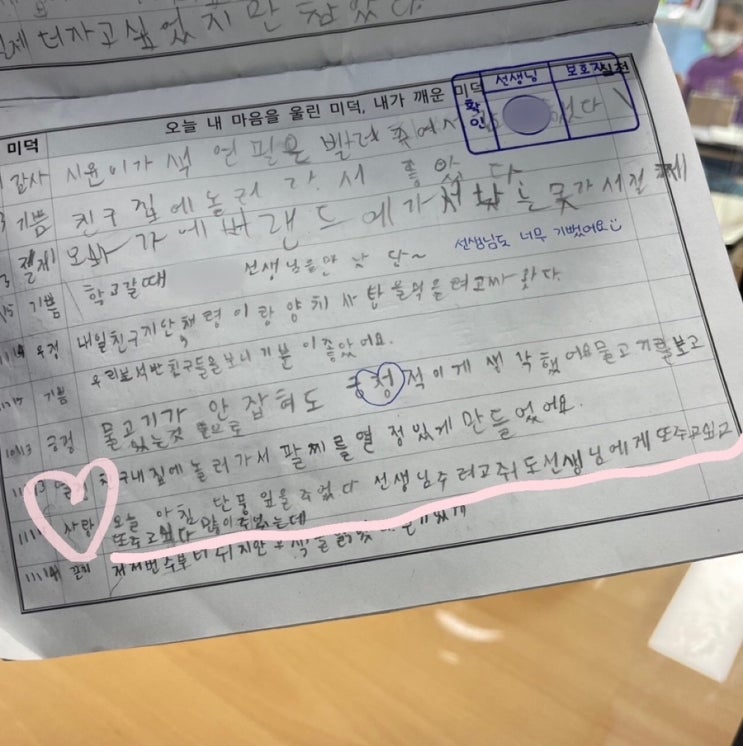 더 자고 싶었지만 참았다.
미덕
오늘 내 마음을 울린 미덕, 내가 깨운 미덕 실천
미덕 확인
선생님
보호자
감사 시윤이가 색연필을 빌려주어서
기쁨 친구 집에 놀러 가서 좋았다
절제 오빠가 에버랜드에 가서
기쁨 학교갈때 선생님을 만났단~
선생님도 너무 기뻤어요
11.14 우정 내일 친구 지안, 채령이랑 양치 사탕을
기쁨 우리분석반친구들을보니기분이좋았어요.
10.13 긍정 물고기가 안 잡혀도 긍정적이게 생각했어요 물고기를보고
있는것 만으로
11.13 친구내집에놀러가서 팔찌를열정있게만들었어요.
사랑 오늘 아침 단풍잎을주웠다 선생님주려고줘도선생님에게또주고싶고
또주고싶다 많이주웠는데
11.14 끈기 저저번주부터 쉬지안